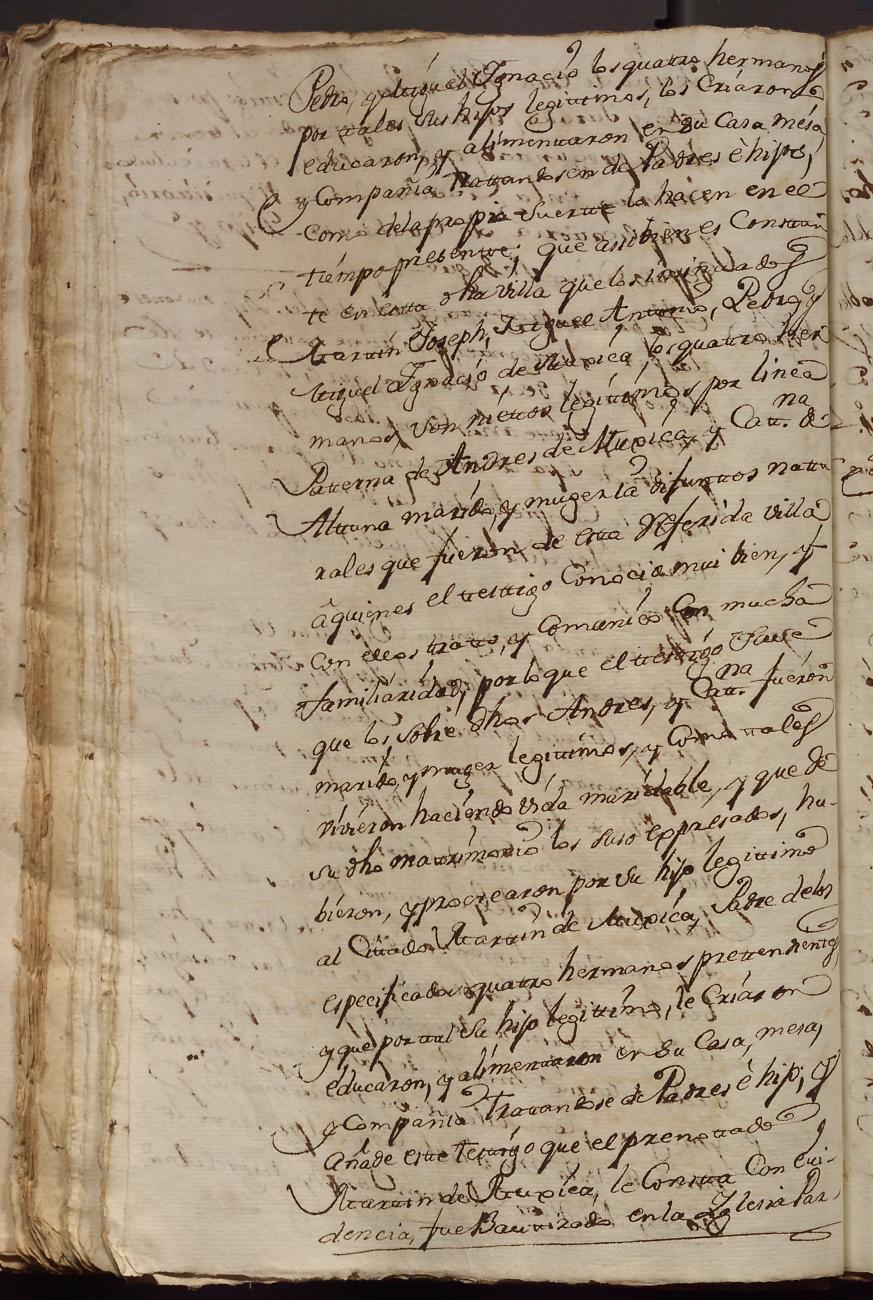 Pedro, y Miguel Ignacio los quatro hermanos
por tales sus hijos legittimos, los Criaron
educaron, y alimentaron en su Casa, mesa
y Compañia trattandosen de Padres è hijos,
Como dela propia suerte lo hacen en el
tiempo presente; que assi bien es Constan
te en esta dha villa que los
Martin Joseph, Miguel Antonio, Pedro, y
Miguel Ignacio de Muxica, los quatro her
manos, son niettos legittimos por linea
Paterna de Andres de Muxica, y Catt.na de
Altuna marido, y muger lâ difunttos nattu
rales que fueron de esta Referida villa
âquienes el testtigo Conocio mui bien, y
Con ellos tratto, y Comunicò Con mucha
familiaridad, por lo que el testigo save
que los sobre dhos Andres, y Catt.na fueron
marido, y muger legittimos, y Como tales
vivieron haciendo vida maridable, y que de
su dho matrimonio los suso expresados, hu-
bieron, y procrearon por su hijo legittimo
al Cittado Martin de Muxica, Padre delos
especificados quatro hermanos prettendientes,
y que por tal su hijo legittimo, le Criaron
educaron, y alimentaron en su Casa, mesa,
y Compañia tratandose de Padres è hijo; y
Añade este testigo que el prenottado
Martin de Muxica, le Constta Con evi-
dencia, fue Bauttizado en la Iglesia Par-